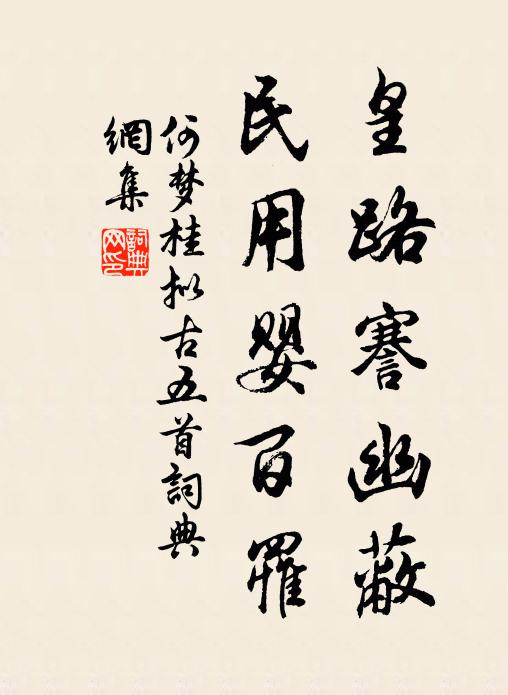 皇路謇幽蔽
民用嬰百罹
何梦桂拟古五首詞典
網集
詞典網印